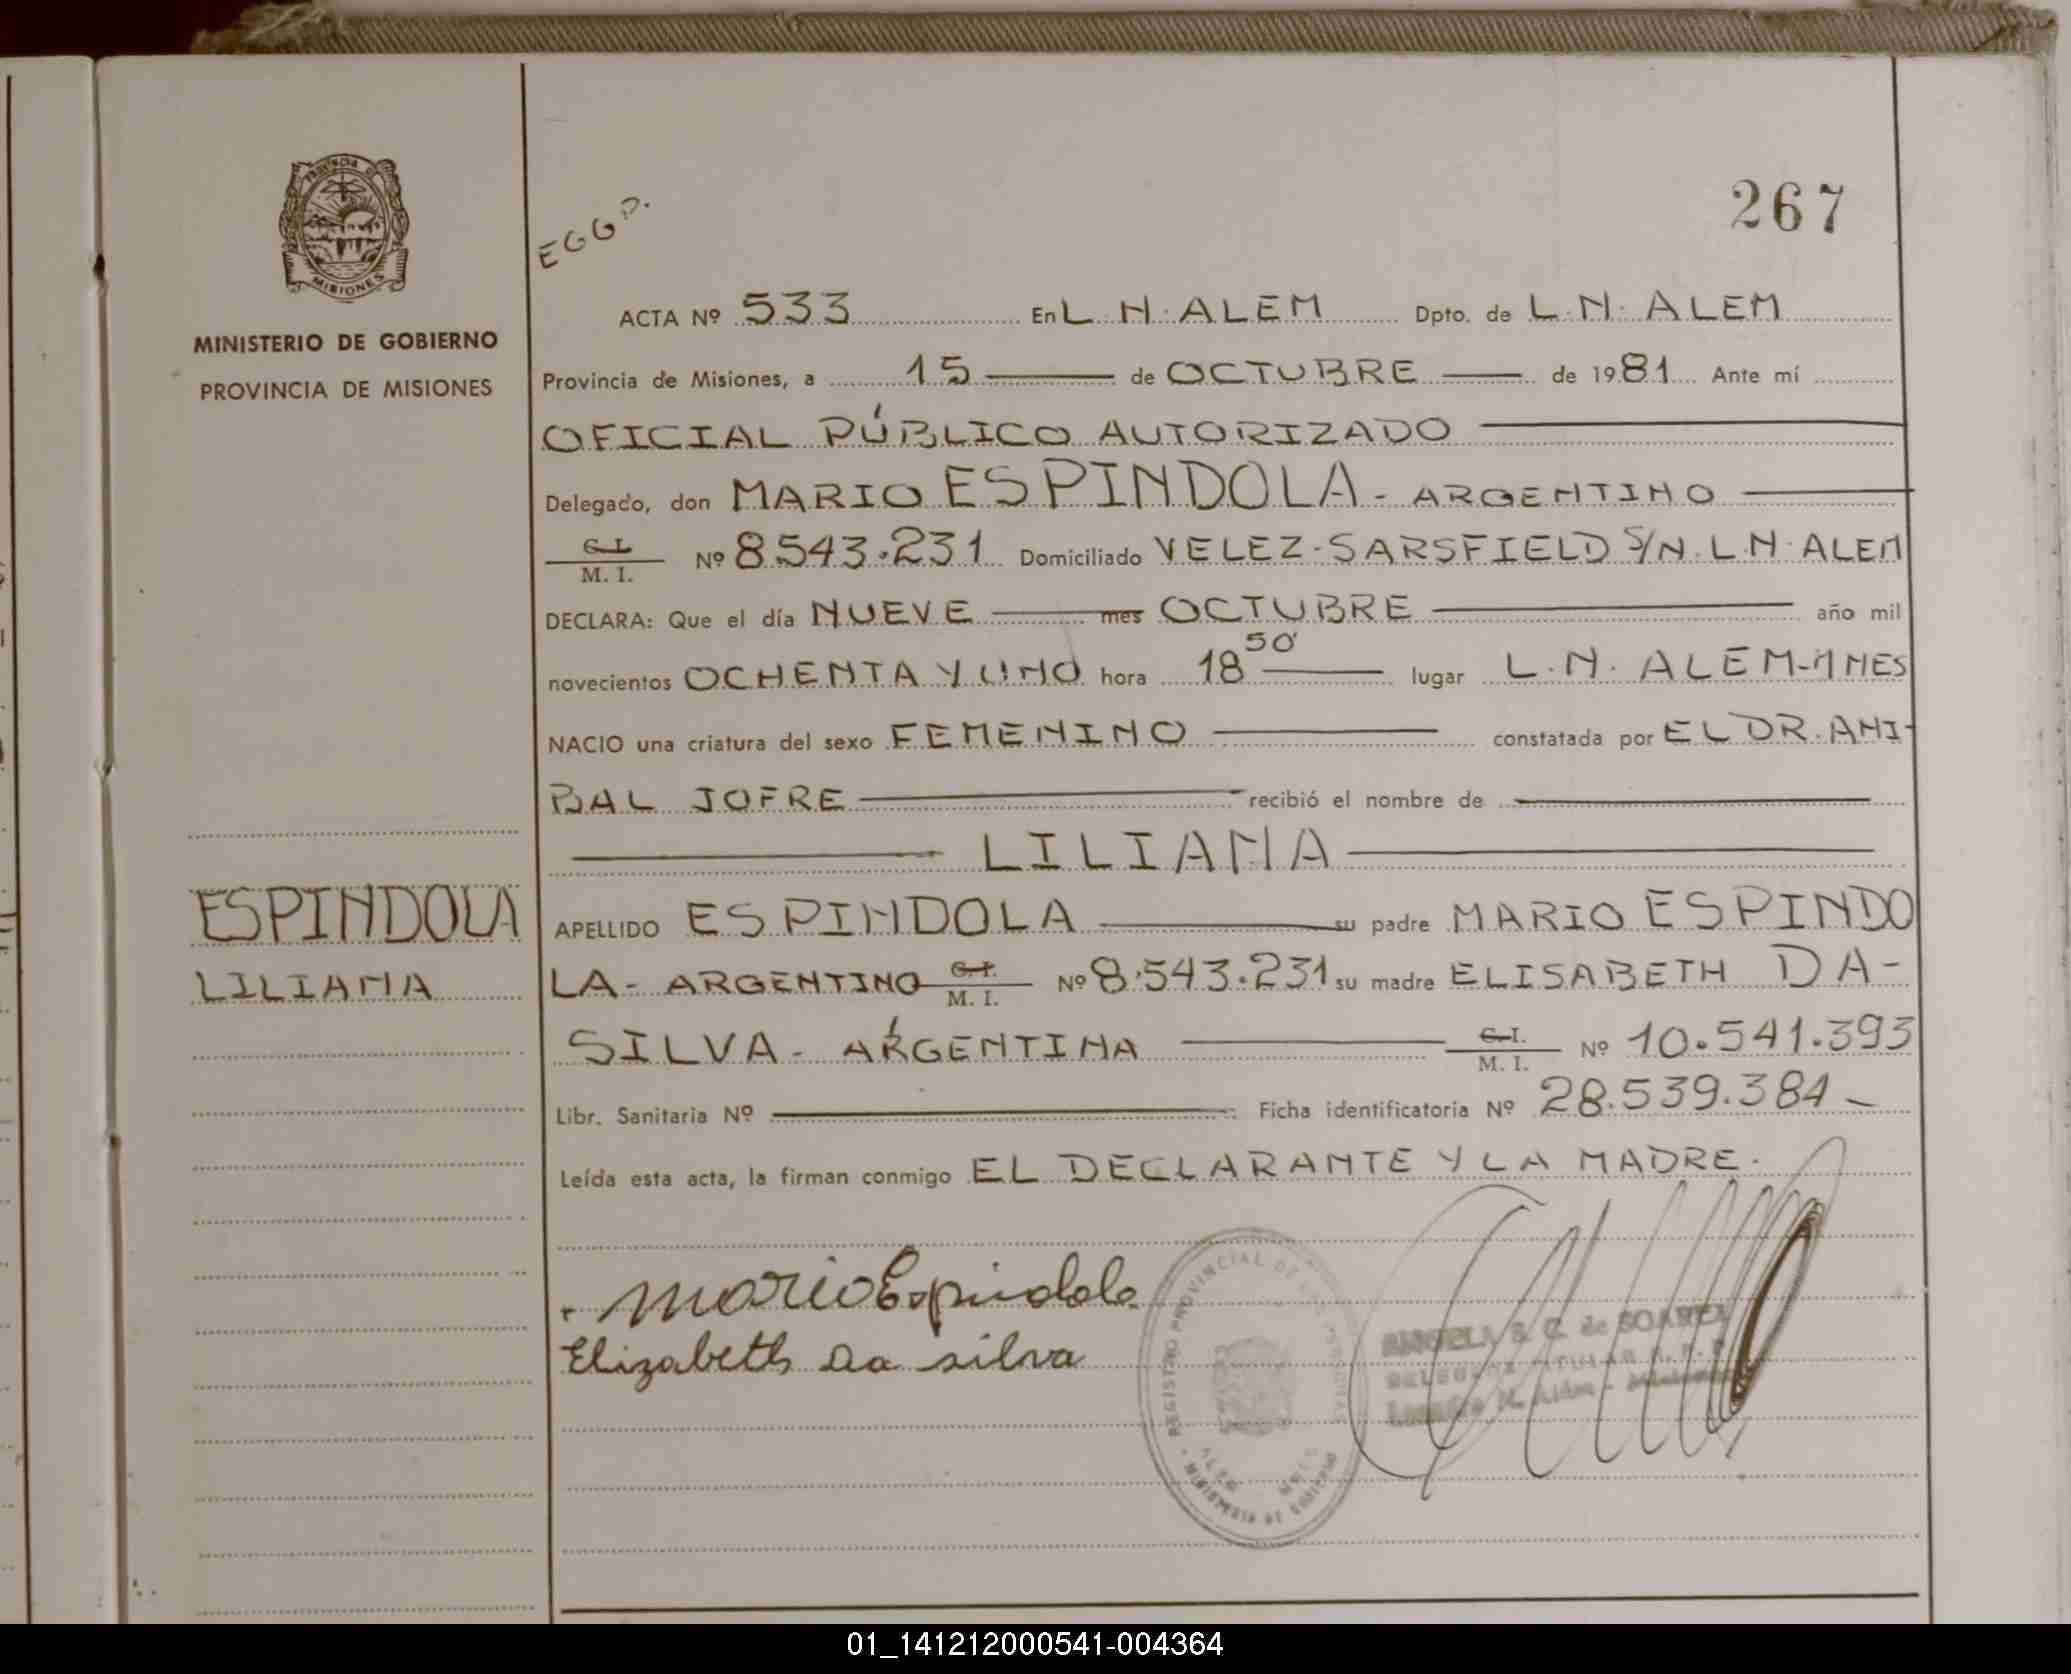 267
EGGP.
PROVINCIA DE
MISIONES
MINISTERIO DE GOBIERNO
PROVINCIA DE MISIONES
ACTA Nº 533 En L.N. ALEM Dpto. de L.N. ALEM
Provincia de Misiones, a 15 de OCTUBRE de 1981 Ante mí
OFICIAL PÚBLICO AUTORIZADO
Delegado, don MARIO ESPINDOLA - ARGENTINO
C.I. M.I. Nº 8.543.231 Domiciliado VELEZ-SARSFIELD S/N. L.N. ALEM
DECLARA: Que el día NUEVE mes OCTUBRE año mil
novecientos OCHENTA Y UNO hora 18 50' lugar L.N. ALEM-MNES
NACIO una criatura del sexo FEMENINO constatada por EL DR. ANI-
BAL JOFRE recibió el nombre de
LILIANA
ESPINDOLA
LILIANA
APELLIDO ESPINDOLA su padre MARIO ESPINDO
LA - ARGENTINO C.I. M.I. Nº 8.543.231 su madre ELISABETH DA-
SILVA - ARGENTINA C.I. M.I. Nº 10.541.393
Libr. Sanitaria Nº Ficha identificatoria Nº 28.539.384 -
Leída esta acta, la firman conmigo EL DECLARANTE Y LA MADRE.
Mario Espindola
Elizabeth Da silva
REGISTRO PROVINCIAL DE LAS PERSONAS
MINISTERIO DE GOBIERNO
ANGELA S. C. de SOAREZ
DELEGADA TITULAR R. P. P.
Leandro N. Alem - Misiones
01_141212000541-004364